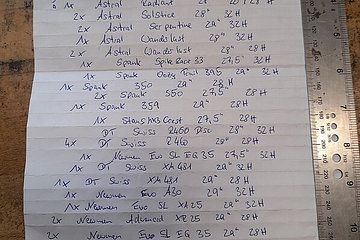 1x Astral Radiant 28H
2x Astral Solstice 28" 32H
2x Astral Serpentine 29" 32H
1x Astral Wanderlust 29" 32H
2x Astral Wanderlust 28" 28H
1x Spank Spike Race 33 27,5" 32H
1x Spank Oozy Trail 395 29" 32H
1x Spank 350 29" 32H
2x Spank 350 29" 28H
1x Spank 359 29" 28H
1x Stans MK3 Crest 27,5" 28H
DT Swiss R460 Disc 28" 32H
4x DT Swiss 28" 28H
1x Newmen Evo SL EG 35 27,5" 32H
1x DT Swiss XM 481 29" 32H
1x DT Swiss 29" 28H
1x Newmen Evo A30 29" 28H
1x Newmen Evo SL XA25 29" 28H
2x Newmen Advanced XR25 29" 28H
2x Newmen Evo SL EG 35 29"